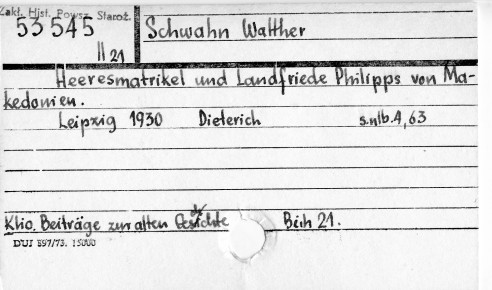 Zakł. Hist. Powsz. Staroż.
53 545
II 21
Schwahn Walther
Heeresmatrikel und Landfriede Philipps von Ma-
kedonien.
Leipzig 1930 Dieterich s.nlb.4, 63
Klio. Beiträge zur alten Gesichte Beih 21.
ch
DUJ 897/73. 15000